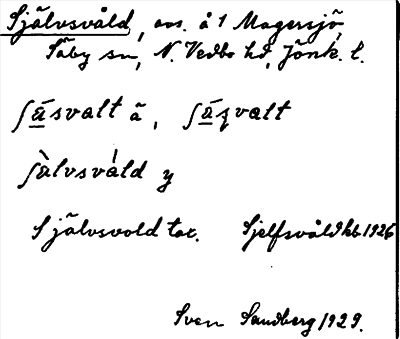 Självsvåld, avs. å 1 Magersjö,
Säby sn, N. Vedbo hd, Jönk. l.
ʃä́svalt ä, ʃä́ʒvalt
ʃàlvsvàld y
Självsvold tax. Sjelfsvåld hb. 1926
Sven Sandberg 1929.